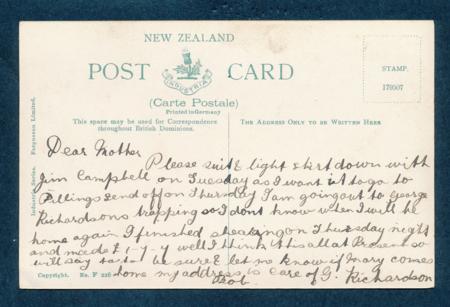 NEW ZEALAND
POST CARD
INDUSTRIA
(Carte Postale)
Printed in Germany
STAMP.
170507
This space may be used for Correspondence
throughout British Dominions.
THE ADDRESS ONLY TO BE WRITTEN HERE
Industria Series. Fergusson Limited.
Dear Mother
Please light shirt down with
Jim Campbell on Tuesday as I want it to go to
Pillings end off on Thursday I am going out to George
Richardsons trapping so I dont know when I will be
home again I finished on Thursday night
and made £ well I think this all at Present so
will say tata be sure & let me know if Mary comes
home my address is care of G. Richardson
Bob.
Copyright. No. F 226